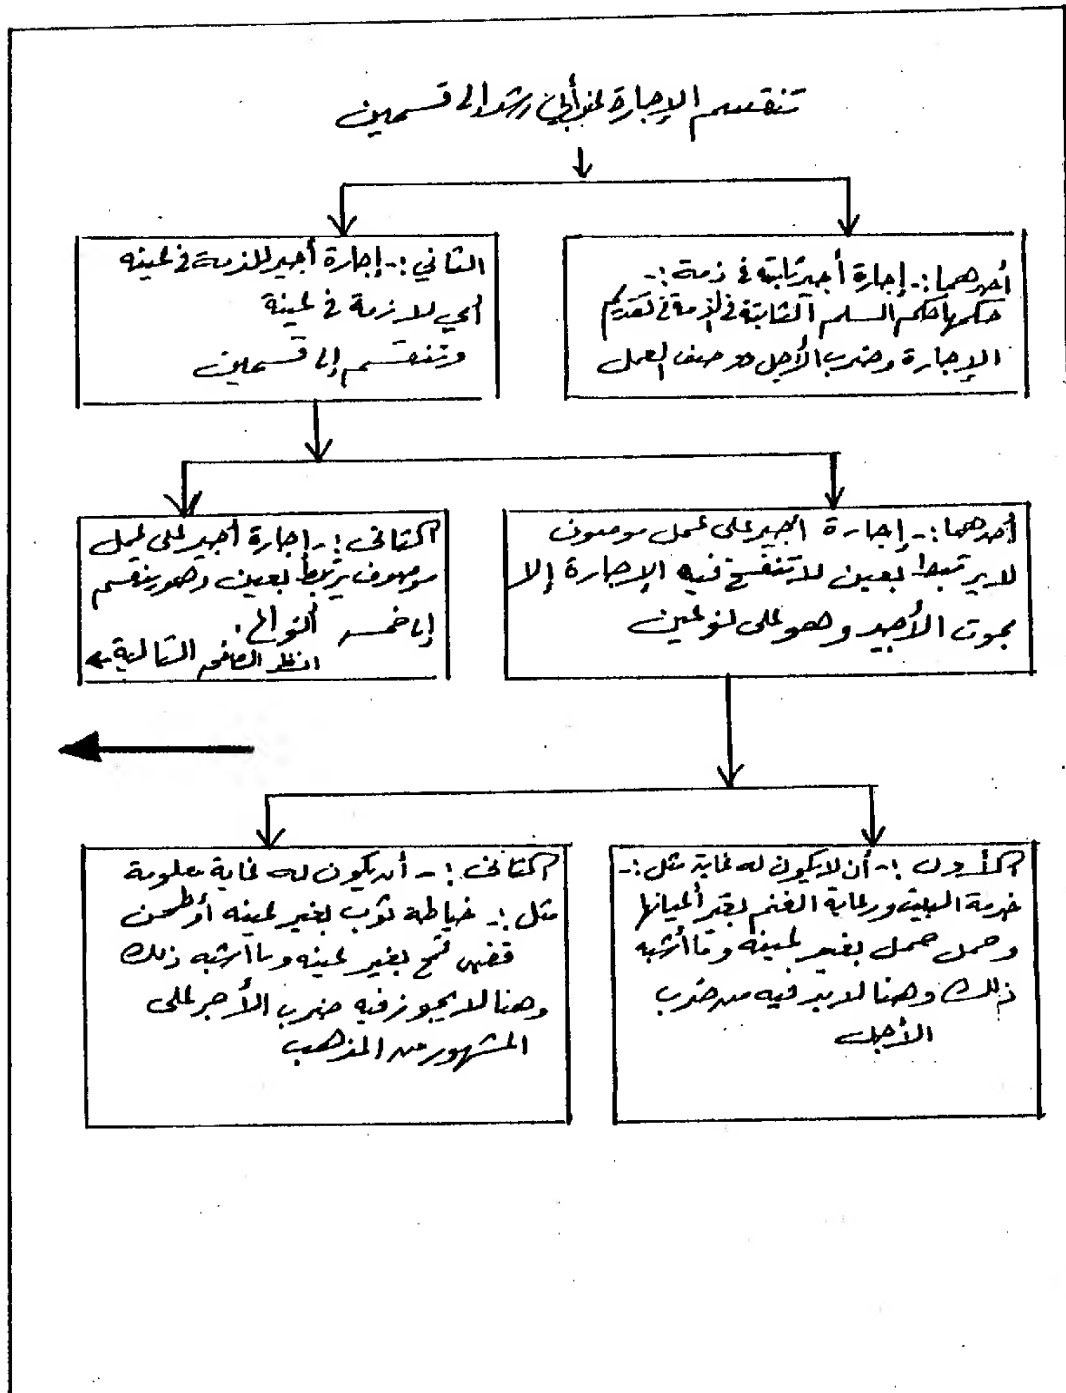 تنقسم الإجارة عند ابن رشد إلى قسمين
أحدهما :- إجارة أجير ثابته في ذمة :-
حكمها حكم السلم الثابتة في الذمة في تقديم
الإجارة وضرب الأجل ووصف العمل
الثاني :- إجارة أجير للازمة في عينه
أي للازمة في عينة
وتنقسم إلى قسمين
أحدهما :- إجارة أجير على عمل موصوف
لا يرتبط بعين لا تنفسخ فيه الإجارة إلا
بموت الأجير وهو على نوعين
الثاني :- إجارة أجير على عمل
موصوف يرتبط بعين وهو ينقسم
إلى خمسه أنواع .
انظر الصفحه التالية ←
الأول :- أن لا يكون له غاية مثل :-
خدمة البيت ورعاية الغنم بغير أعيانها
وحمل حمل بغير عينه وما أشبه
ذلك وهنا لا بد فيه من ضرب
الأجل
الثاني :- أن يكون له غاية معلومة
مثل :- خياطة ثوب بغير عينه أو طحن
قمح بغير عينه وما أشبه ذلك
وهنا لا يجوز فيه ضرب الأجر على
المشهور من المذهب